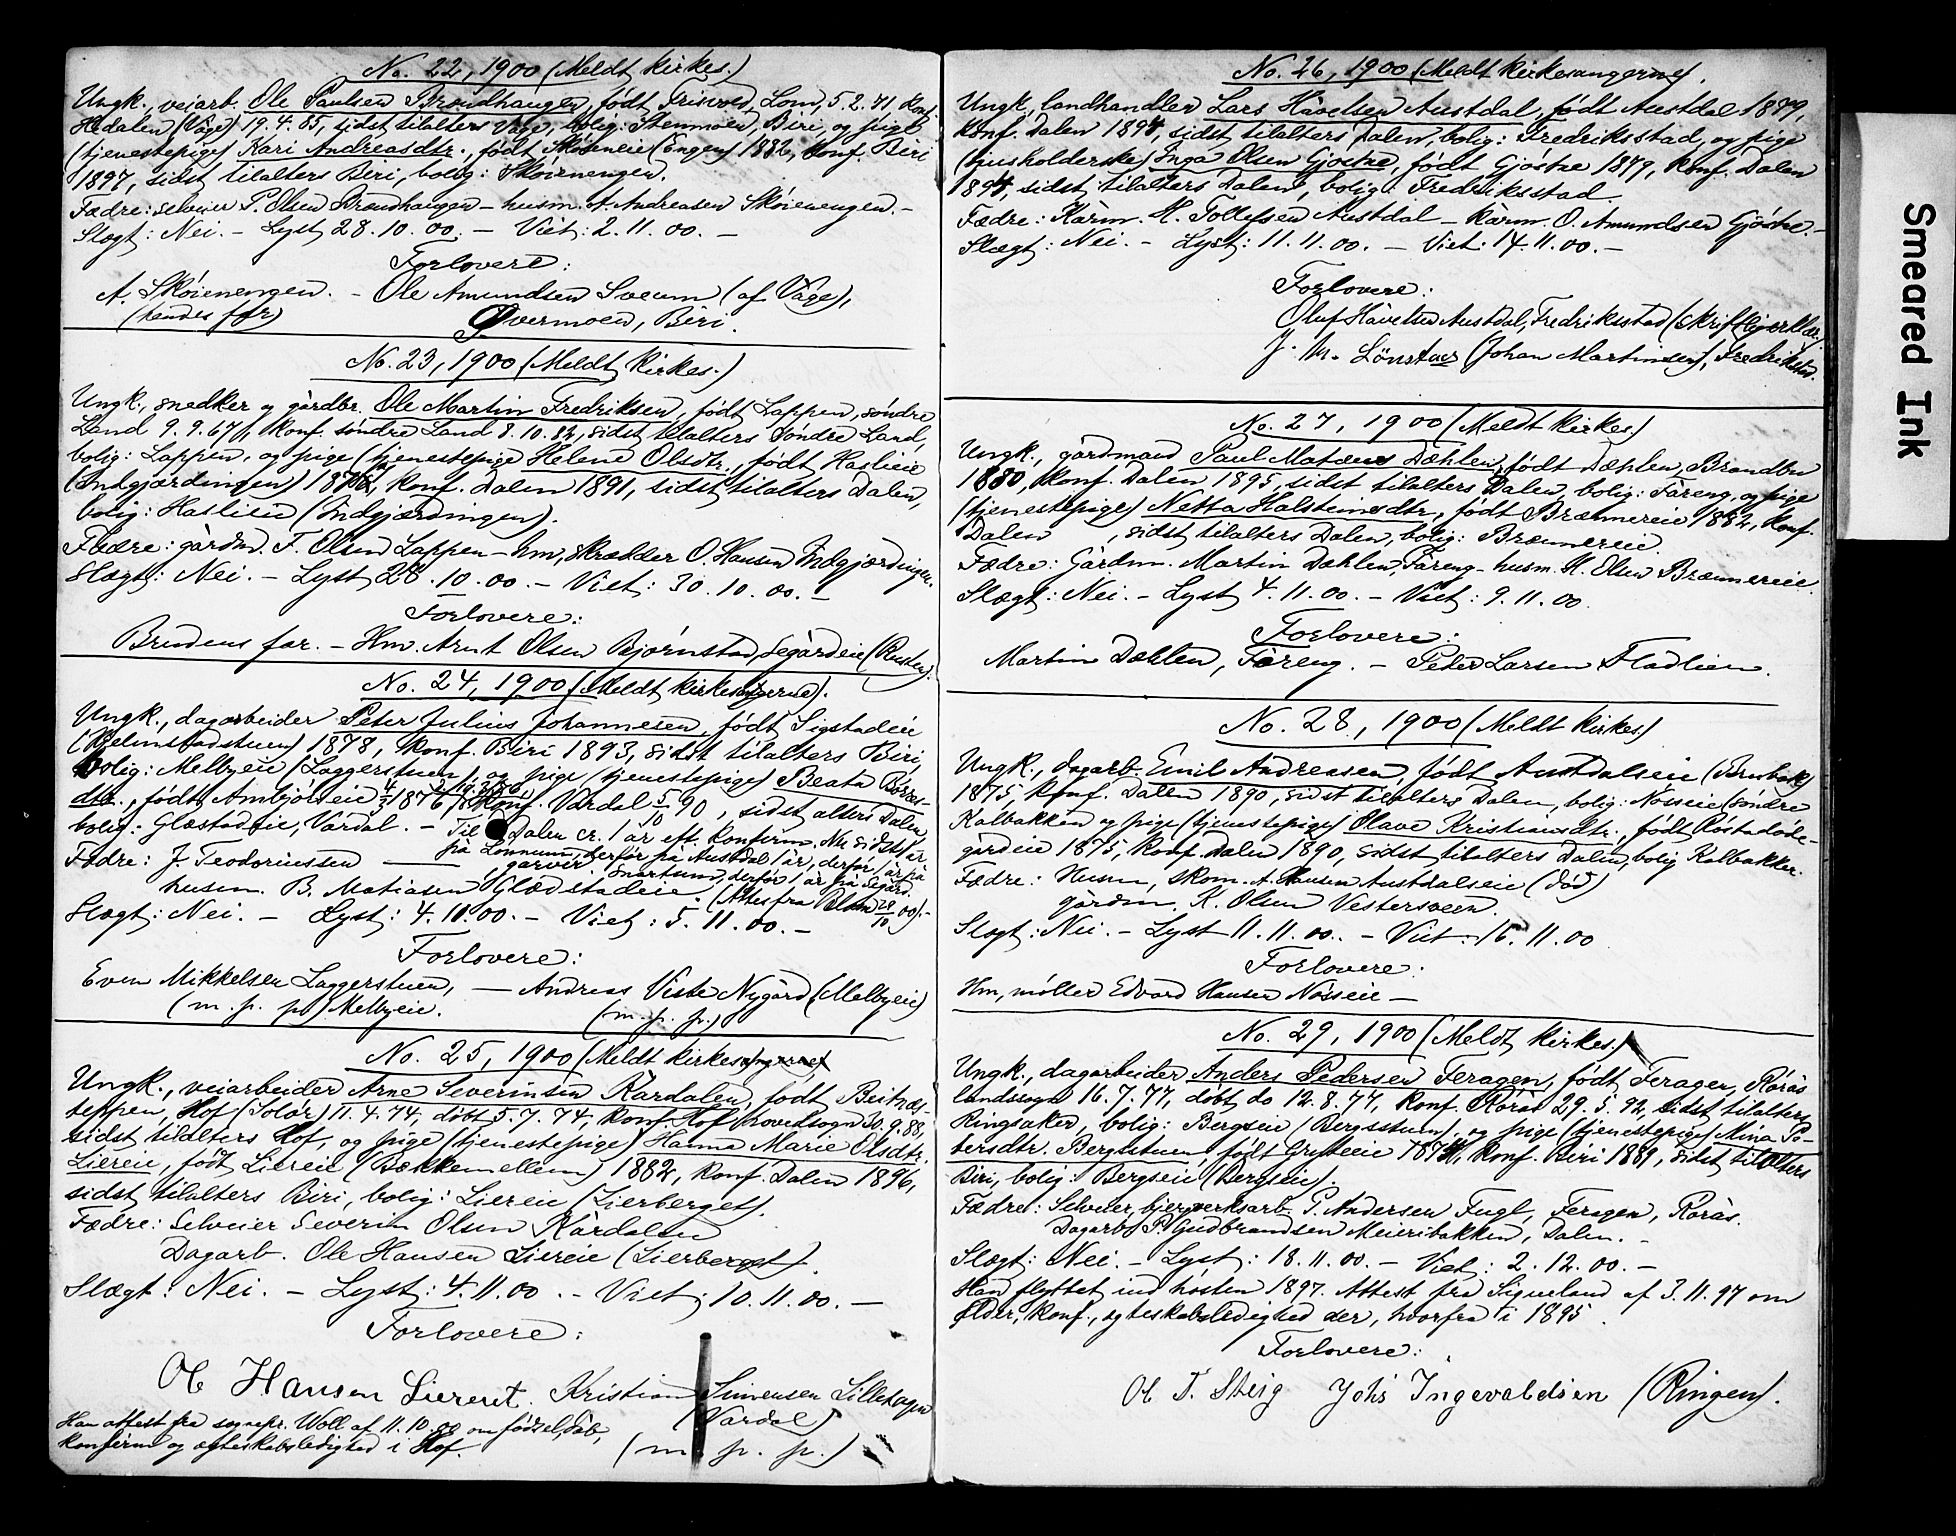 No. 22, 1900 (Meldt kirkes.)
Ungk., veiarb. Ole Paulsen Brændhaugen, født Frisvold, Lom, 5.2.71, konf.
Hedalen (Våge) 19.4.85, sidst tilalters Våge, bolig: Stenmoen, Biri, og pige
(tjenestepige) Kari Andreasdtr., født Skøieneie (Engen) 1882, konf. Biri
1897, sidst tilalters Biri, bolig: Skøienengen.
Fædre: selveier P. Olsen Brændhaugen – husm. A. Andreasen Skøienengen. –
Slægt: Nei. – Lyst 28.10.00. – Viet: 2.11.00. –
Forlovere:
A. Skøienengen. – Ole Amundsen Sveum (af Våge),
(hendes far) Øvermoen, Biri.
No. 23, 1900 (Meldt kirkes.)
Ungk., snedker og gårdbr. Ole Martin Fredriksen, født Lappen, søndre
Land 9.9.67, konf. søndre Land 8.10.82, sidst tilalters søndre Land,
bolig: Lappen, og pige (tjenestepige Helene Olsdtr., født Haslieie
(Indgjærdingen) 1876, konf. Dalen 1891, sidst tilalters Dalen,
bolig: Haslieie (Indgjærdingen).
Fædre: gårdm. F. Olsen Lappen – hm., skrædder O. Hansen Indgjærdingen.
Slægt: Nei. – Lyst 28.10.00. – Viet: 30.10.00. –
Forlovere:
Brudens far. – Hm. Arnt Olsen Bjørnstad, Segårdeie (Rusten).
No. 24, 1900 (Meldt kirkesangerne).
Ungk., dagarbeider Peter Julius Johannesen, født Sigstadeie
(Helmstadstuen) 1878, konf. Biri 1893, sidst tilalters Biri,
bolig: Melbyeie (Laggerstuen), og pige (tjenestepige) Beata
dtr., født Ambjølseie 4/3 1876, konf. Vardal 5/10 90, sidst alters Dalen,
bolig: Glæstadeie, Vardal. – Til Dalen cr. 1 år eft. konfirm. Nu sidst 1 år
på Lønnum, derfor på Austdal 1 år, derfor 1 år på
Fædre: J. Teodorinssen ——— garver Snartum, derfor 1 år på Segård.
husm. B. Matiasen Glædstadeie. (Attes fra 28/10 00). –
Slægt: Nei. – Lyst: 4.11.00. – Viet: 5.11.00. –
Forlovere:
Even Mikkelsen Laggerstuen, — Andreas Viste Nygård (Melbyeie)
(m. p. p.) Melbyeie. (m. p. p.)
No. 25, 1900 (Meldt kirkesangerne)
Ungk., veiarbeider Arne Severinsen Kårdalen, født Beitnes-
teppen, Hof (Solør) 11.4.74, døbt 5.7.74, konf. Hof hovedsogn 30.9.88,
sidst tilalters Hof, og pige (tjenestepige) Hanna Marie Olsdtr.
Liereie, født Liereie (Bækkemellem) 1882, konf. Dalen 1896,
sidst tilalters Biri, bolig: Liereie (Lierberget).
Fædre: Selveier Severin Olsen Kårdalen
Dagarb. Ole Hansen Liereie (Lierberget).
Slægt: Nei. – Lyst: 4.11.00. – Viet: 10.11.00. –
Forlovere:
Ol Hansen Liereiet. Kristian Simensen Lillehagen
(Vardal)
Han attest fra sognepr. Woll af 11.10.00 om fødsel, dåb,
konfirm. og ægteskabsledighed i Hof. (m. p. p.)
No. 26, 1900 (Meldt kirkesangerne).
Ungk., landhandler Lars Håvelsen Austdal, født Austdal 1879,
konf. Dalen 1894, sidst tilalters Dalen, bolig: Fredriksstad, og pige
(husholderske) Inga Olsen Gjøstre, født Gjøstre 1879, konf. Dalen
1894, sidst tilalters Dalen, bolig: Fredriksstad.
Fædre: Kårm. H. Tollefsen Austdal – kårm. O. Amundsen Gjøstre. –
Slægt: Nei. – Lyst: 11.11.00. – Viet: 14.11.00. –
Forlovere:
Oluf Håvelsen Austdal, Fredriksstad
J. M. Lönstuer (Johan Martinsen), Fredrikstad.
No. 27, 1900 (Meldt kirkes.)
Ungk., gårdmand Paul Matæus Dæhlen, født Dæhlen, Brandbu
1880, konf. Dalen 1895, sidst tilalters Dalen, bolig: Færeng, og pige
(tjenestepige) Netta Halsteinsdtr., født Brænnereie 1882, konf.
Dalen , sidst tilalters Dalen, bolig: Brænnereie.
Fædre: Gårdm. Martin Dæhlen, Færeng – husm. H. Olsen Brænnereie.
Slægt: Nei. – Lyst 4.11.00. – Viet: 9.11.00.
Forlovere:
Martin Dæhlen, Færeng. – Peder Larsen Fladlien.
No. 28, 1900 (Meldt kirkes.)
Ungk., dagarb. Emil Andreasen, født Austdalseie (Brubak)
1875, konf. Dalen 1890, sidst tilalters Dalen, bolig: Nøsseie (søndre
Kalbakken og pige (tjenestepige) Olave Kristiansdtr., født Røstadøde-
gårdeie 1875, konf. Dalen 1890, sidst tilalters Dalen, bolig Kalbakken.
Fædre: Husm., skom. A. Hansen Austdalseie (død)
gårdm. K. Olsen Vestersveen.
Slægt: Nei. – Lyst 11.11.00. – Viet: 16.11.00
Forlovere:
Hm, møller Edvard Hansen Nøsseie –
No. 29, 1900 (Meldt kirkes.)
Ungk., dagarbeider Anders Pedersen Feragen, født Feragen, Rørås
landssogn 16.7.77, døbt do 12.8.77, konf. Rørås 29.5.92, sidst tilalters
Ringsaker, bolig: Bergseie (Bergsstuen), og pige (tjenestepige) Mina Pe-
dersdtr. Bergstuen, født Grytteie 1874, konf. Biri 1889, sidst tilalters
Biri, bolig: Bergseie (Bergseie).
Fædre: Selveier, bjergverksarb. P. Andersen Fugl, Feragen, Rørås.
Dagarb. P. Gudbrandsen Meieribakken, Dalen. –
Slægt: Nei. – Lyst: 18.11.00. – Viet: 2.12.00. –
Han flyttet ind høsten 1897. Attest fra af 3.11.97 om
alder, konf., ægteskabsledighed der, hvorfra i 1895.
Forlovere:
Ol T. Steig Johs Ingevaldsen (Ringen).
Smeared Ink